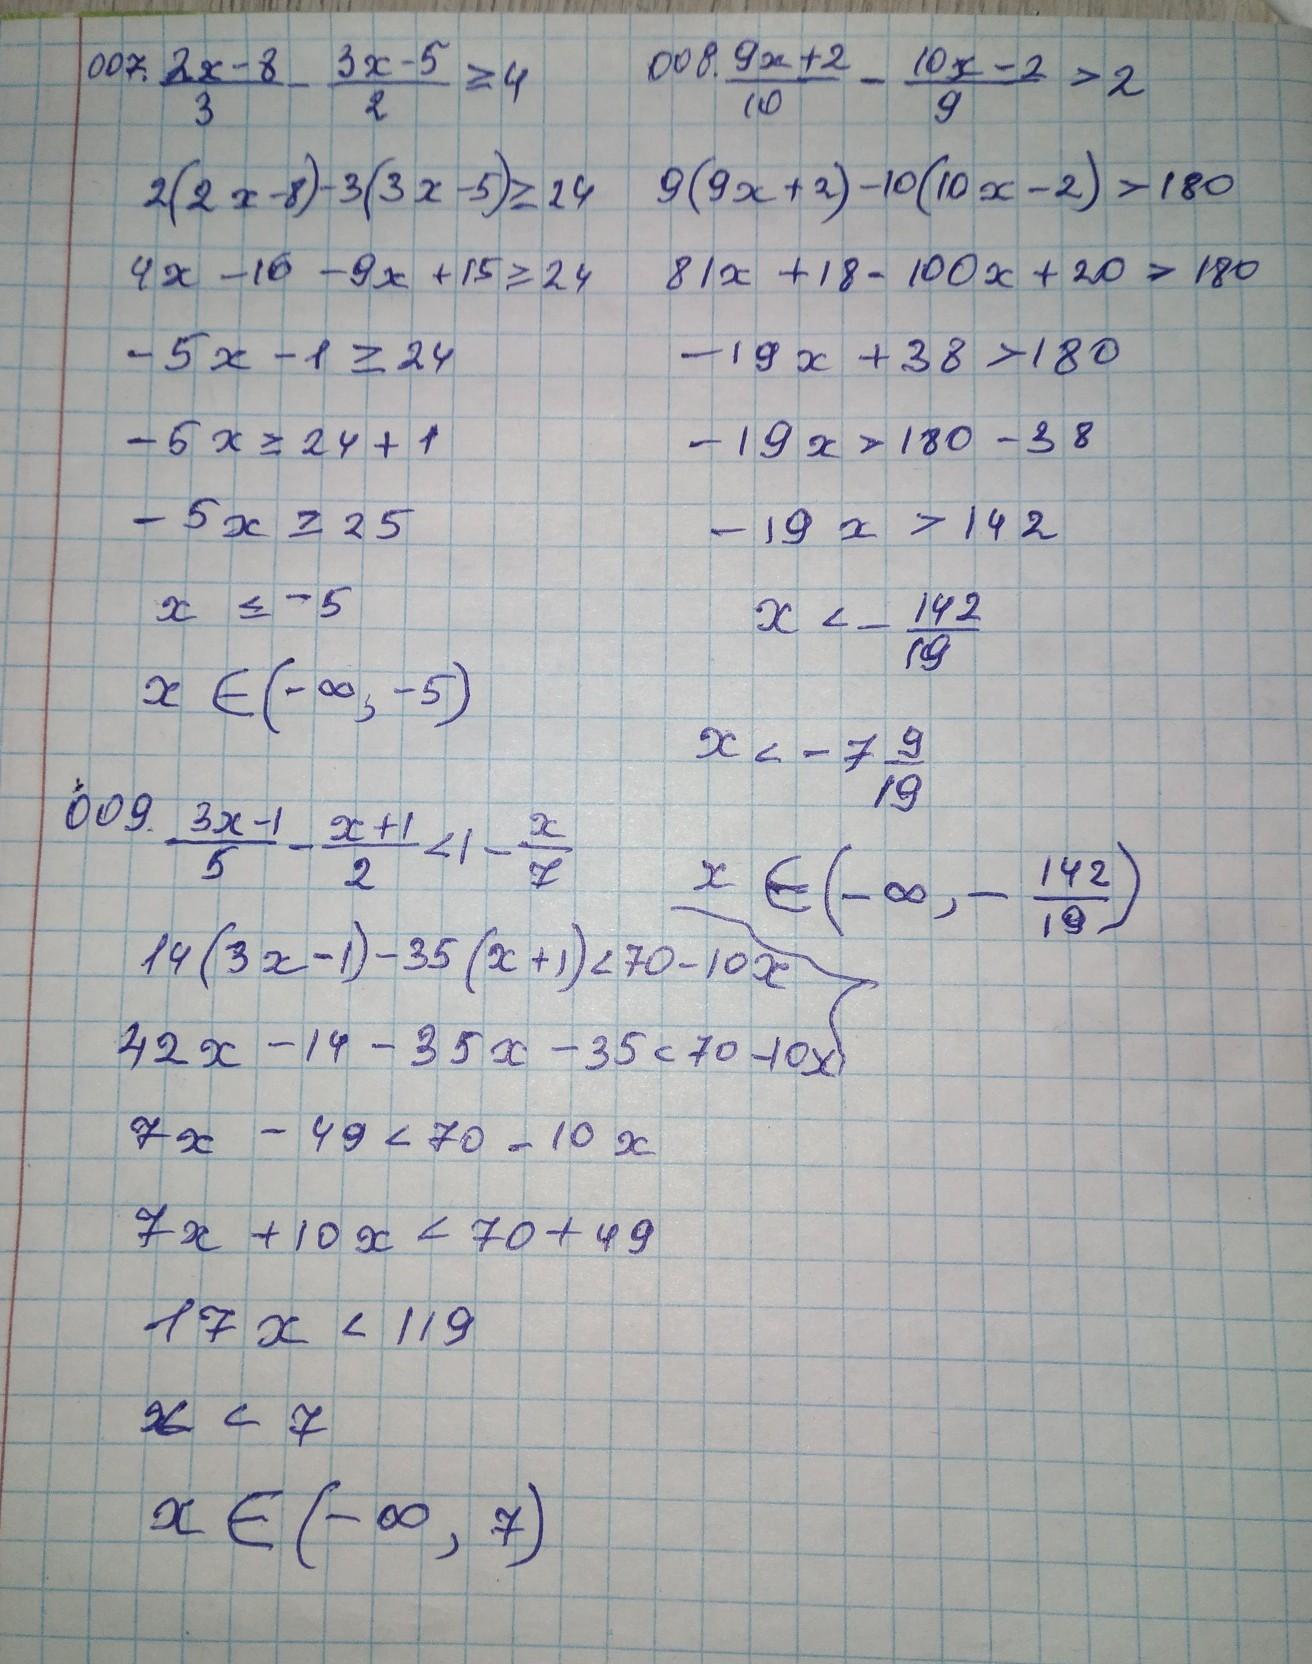 007. (2x-8)/3 - (3x-5)/2 ≥ 4
2(2x-8)-3(3x-5)≥24
4x-16-9x+15≥24
-5x-1≥24
-5x≥24+1
-5x≥25
x≤-5
x∈(-∞,-5)
008. (9x+2)/10 - (10x-2)/9 > 2
9(9x+2)-10(10x-2)>180
81x+18-100x+20>180
-19x+38>180
-19x>180-38
-19x>142
x<-142/19
x<-7 9/19
x∈(-∞,-142/19)
009. (3x-1)/5 - (x+1)/2 < 1 - x/7
14(3x-1)-35(x+1)<70-10x
42x-14-35x-35<70-10x
7x-49<70-10x
7x+10x<70+49
17x<119
x<7
x∈(-∞,7)